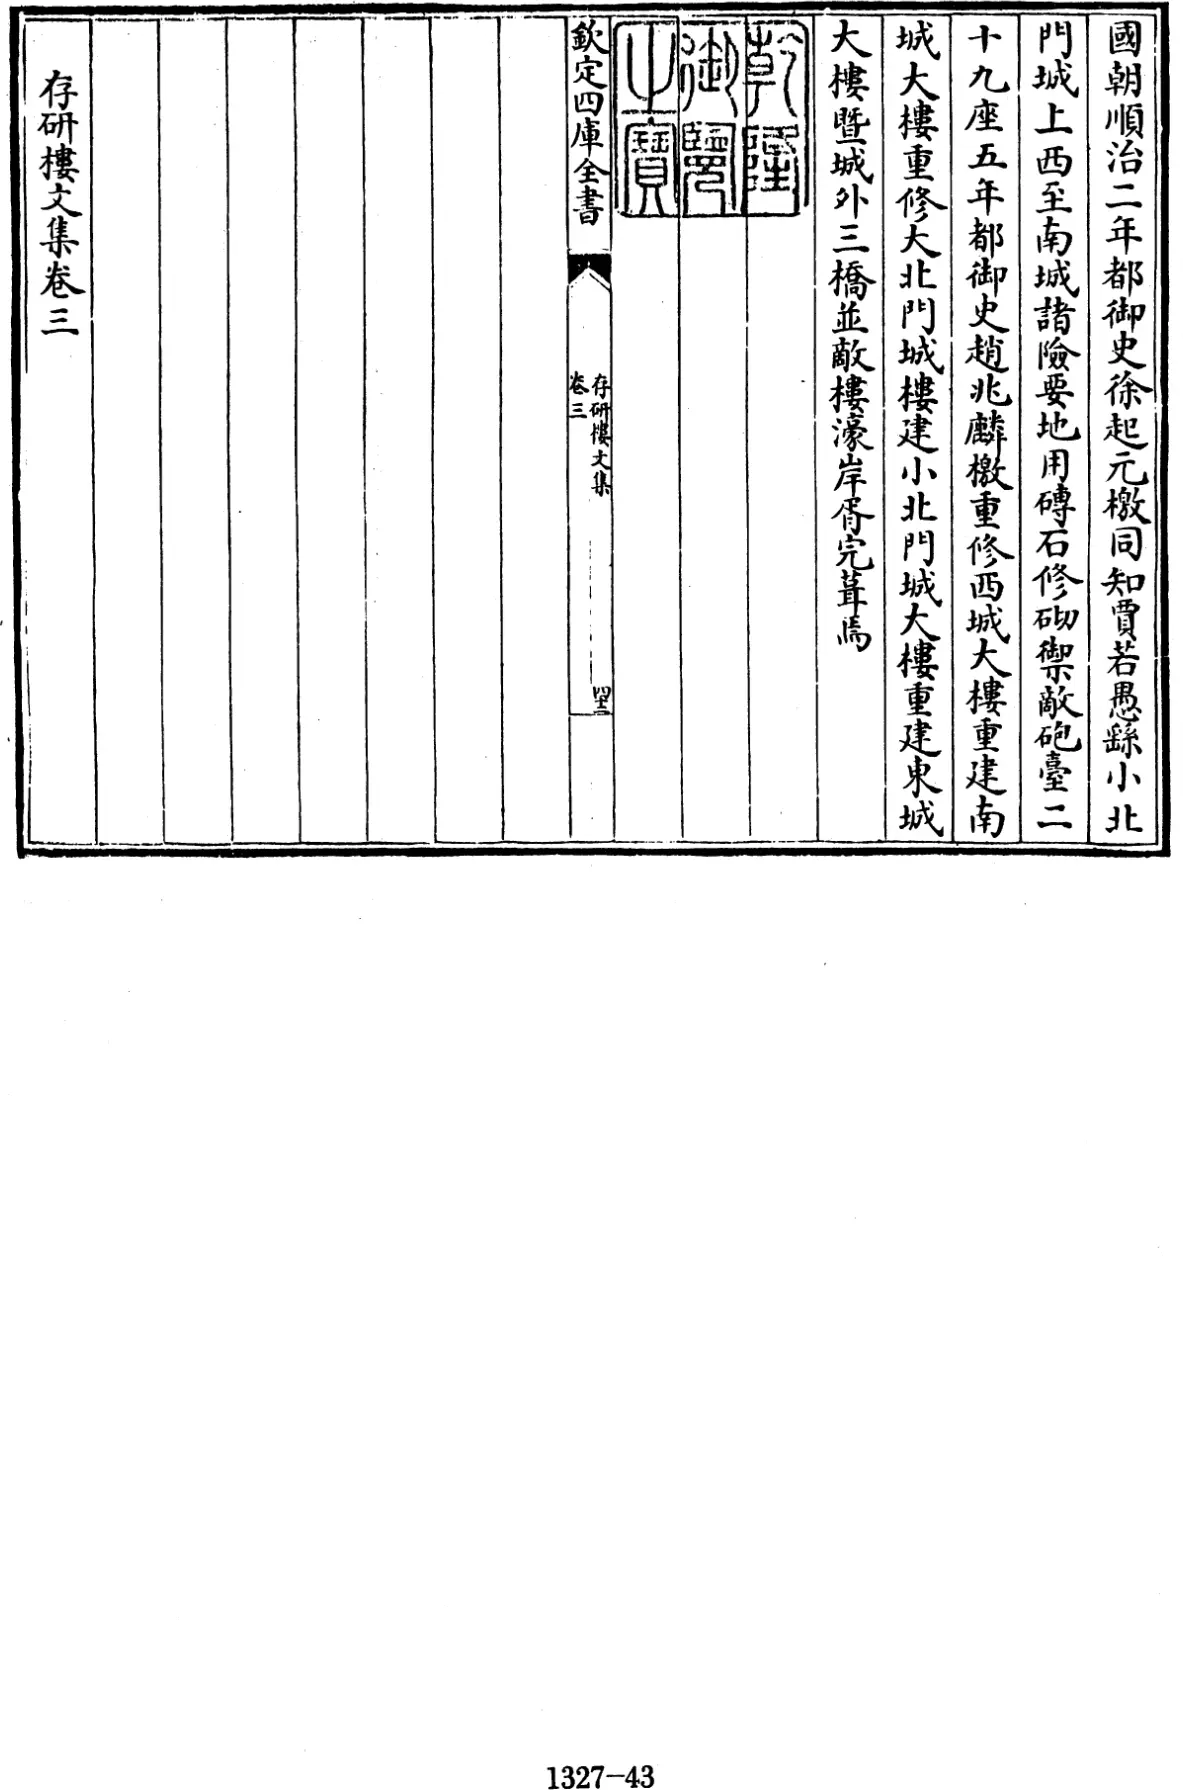 國朝順治二年都御史徐起元檄同知賈若愚繇小北
門城上西至南城諸險要地用磚石修砌禦敵砲臺二
十九座五年都御史趙兆麟檄重修西城大樓重建南
城大樓重修大北門城樓建小北門城大樓重建東城
大樓暨城外三橋並敵樓濠岸胥完葺焉
乾隆
御覽
之寶
欽定四庫全書
存研樓文集
卷三
存研樓文集卷三
1327-43